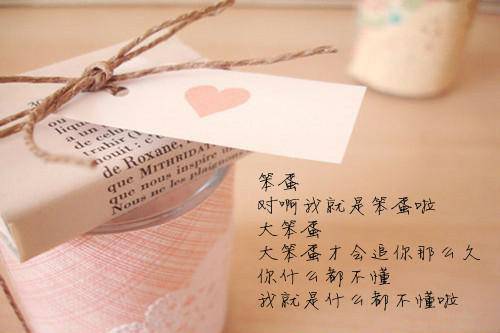 de Roxane,
que MITHRIDAT
que nous inspire
Nous ne les plaignons
笨蛋
对啊我就是笨蛋啦
大笨蛋
大笨蛋才会追你那么久
你什么都不懂
我就是什么都不懂啦